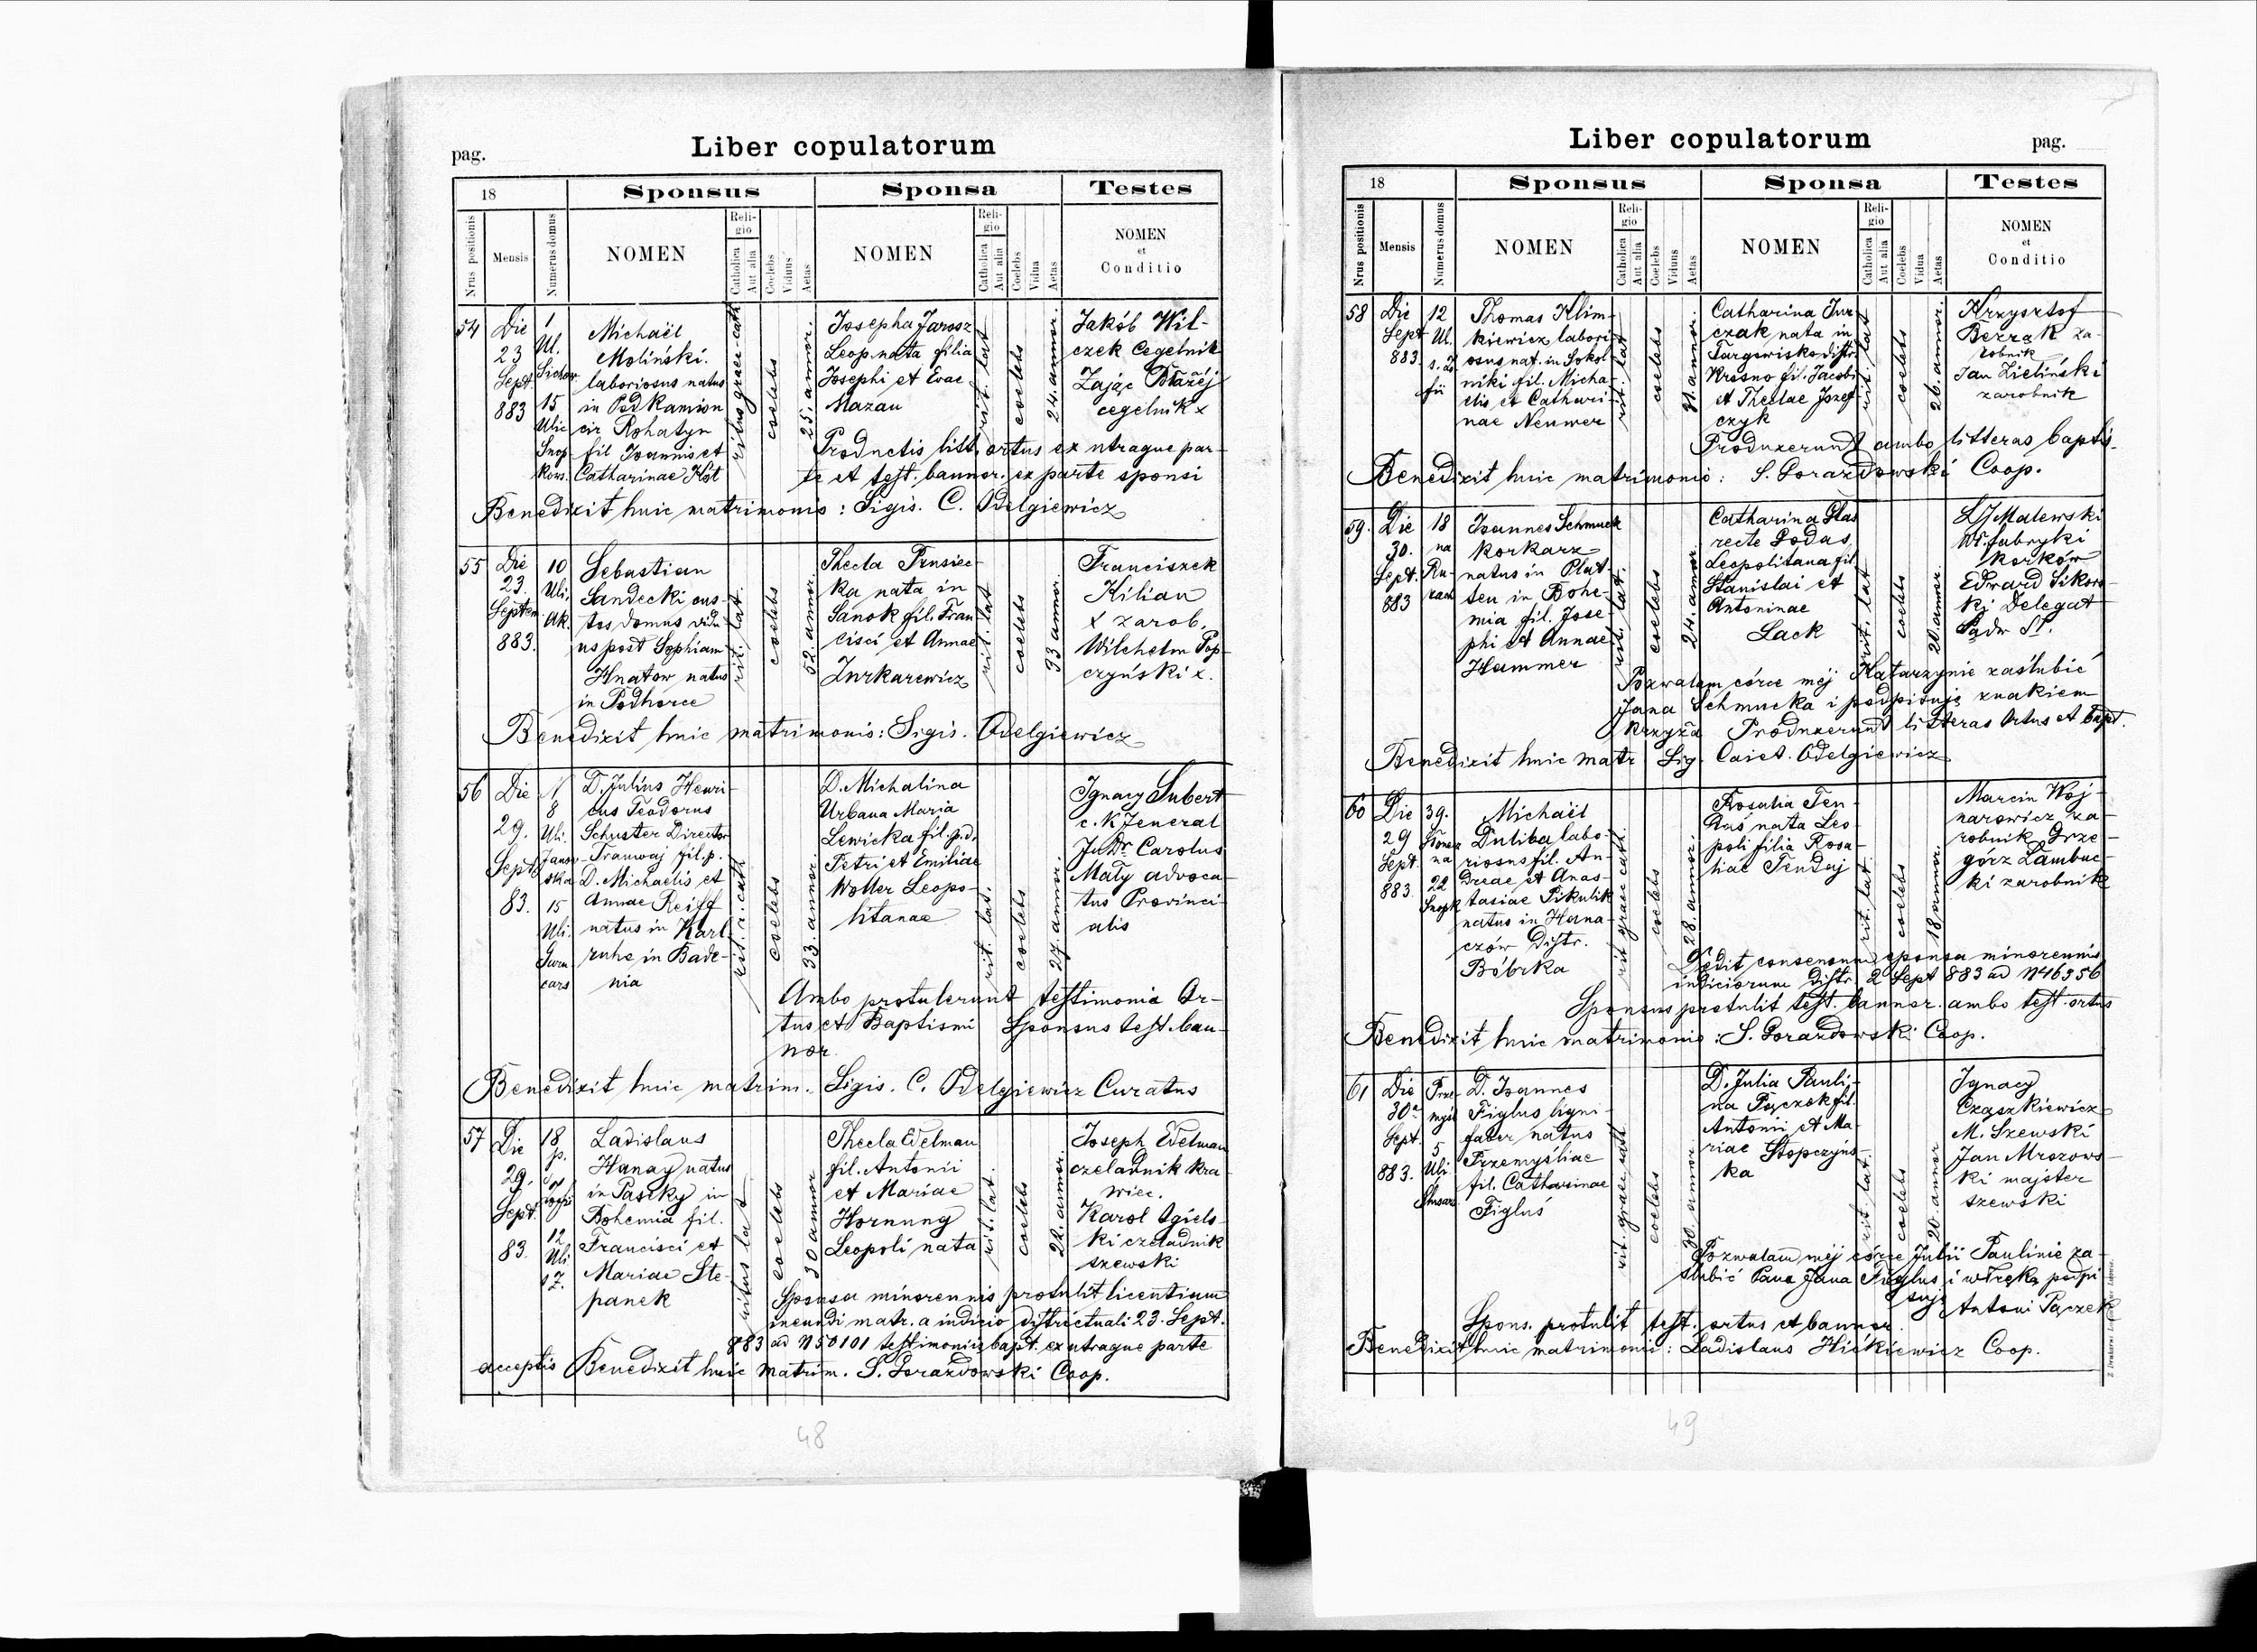 Liber copulatorum
pag.
18
Sponsus
Sponsa
Testes
Nrus positionis
Mensis
Numerus domus
NOMEN
Religio
Catholica
Aut alia
Coelebs
Viduus
Aetas
NOMEN
Religio
Catholica
Aut alia
Coelebs
Vidua
Aetas
NOMEN
et
Conditio
54
Die
23
Sept
883
1
Ul.
15
Ulic
Snop
kow.
Michaël
Moliński.
laboriosus natus
in Podkamion
cir Rohatyn
fil Joannis et
Catharinae Kot
ritus graec. cath
coelebs
25. annor.
Josepha Jarosz
Leop. nata filia
Josephi et Evae
Mazau
rit. lat
coelebs
24. annor.
Jakób Wil-
czek Cegelnik
Zając Błażéj
cegelnik x
Productis litt. ortus ex utraque par-
te et test. bannor. ex parte sponsi
Benedixit huic matrimonio: Sigis. C. Odelgiewicz
55
Die
23.
Septem
883.
10
Uli.
Ak.
Sebastian
Sandecki cus-
tos domus vidu
us post Sophiam
Hnatow natus
in Podhorce
rit. lat.
coelebs
52. annor.
Thecla Prusiec-
ka nata in
Sanok fil. Fran-
cisci et Annae
Zurkarewicz
rit. lat
coelebs
33 annor.
Franciszek
Kilian
x zarob.
Wilchelm Pop-
czyński x.
Benedixit huic matrimonio: Sigis. Odelgiewicz
56
Die
29.
Sept
83.
N
8
Uli.
Janow-
ska
15
Uli.
D. Julius Henri-
cus Teodorus
Schuster Director
Tramwaj fil. p.
D. Michaelis et
Annae Reiff
natus in Karl-
ruhe in Bade-
nia
rit. r. cath.
coelebs
33. annor.
D. Michalina
Urbana Maria
Lewicka fil. p. d.
Petri et Emiliae
Woller Leopo-
litanae
rit. lat.
coelebs
27. annor.
Ignacy Subert
c. K Jeneral
JuDr Carolus
Mały advoca-
tus Provinci-
alis
Ambo protulerunt testimonia Or-
tus et Baptismi Sponsus test. ban-
nor.
Benedixit huic matrim. Sigis. C. Odelgiewicz Curatus
57
Die
29.
Sept.
83.
18
p.
12
Uli
Ladislaus
Hanay natus
in Pasiky in
Bohemia fil.
Francisci et
Mariae Ste-
panek
ritus lat
coelebs
30 annor
Thecla Edelman
fil. Antonii
et Mariae
Hornung
Leopoli nata
rit. lat.
coelebs
22. annor.
Joseph Edelman
czeladnik kra-
wiec.
Karol Ogiels-
ki czeladnik
szewski
Sponsa minorennis protulit licentiam
ineundi matr. a indicio districtuali 23. Sept.
883 ad N50101 testimoniis bapt. ex utraque parte
acceptis Benedixit huic matrim. S. Gorazdowski Coop.
48
Liber copulatorum
pag.
18
Sponsus
Sponsa
Testes
Nrus positionis
Mensis
Numerus domus
NOMEN
Religio
Catholica
Aut alia
Coelebs
Viduus
Aetas
NOMEN
Religio
Catholica
Aut alia
Coelebs
Vidua
Aetas
NOMEN
et
Conditio
58
Die
Sept
883
12
Ul.
Thomas Klim-
kiewicz labori
osus nat. in Sokol
niki fil. Micha-
elis et Cathari-
nae Neumer
rit. lat
coelebs
31 annor.
Catharina Jur
czak nata in
Targowisko distr.
Krosno fil. Jacobi
et Theclae Jozef-
czyk
rit. lat
coelebs
26. annor.
Krzysztof
Bezzak za-
robnik
Jan Zieliński
zarobnik
Produxerunt ambo litteras baptis.
Benedixit huic matrimonio: S. Gorazdowski Coop.
59.
Die
30.
Sept.
883
18
na
Joannes Schmuck
Korkarz
natus in Plat-
ten in Bohe-
mia fil. Jose-
phi et Annae
Hammer
rit. lat.
coelebs
24. annor
Catharina Stas
recte Sodas
Leopolitana fil.
Stanislai et
Antoninae
Lack
rit. lat
coelebs
20. annor.
Malewski
Wł. fabryki
korków
Edward Sikors-
ki Delegat
Sądu
Pozwalam córce mej Katarzynie zaślubić
Jana Schmucka i podpisuję znakiem
krzyża Produxerunt litteras Ortus et bapt.
Benedixit huic matr Sig. Caiet. Odelgiewicz
60
Die
29
Sept.
883.
39.
na
22
Snopk
Michaël
Duliba labo-
riosus fil. An-
dreae et Anas-
tasiae Pikulik
natus in Hana-
czów Distr.
Bóbrka
rit graec cath.
coelebs
28. annor.
Rosalia Ten-
daś nata Leo-
poli filia Rosa-
liae Tendaj
rit. lat.
coelebs
18 annor.
Marcin Woj-
narowicz za-
robnik Grze-
górz Lambuc-
ki zarobnik
Dedit consensum sponsa minorennis
indiciorum Distr. 2 Sept 883 ad N46956
Sponsus protulit test. bannor. ambo test. ortus
Benedixit huic matrimonio: S. Gorazdowski Coop.
61
Die
30a
Sept.
883.
Prze-
myśl
5
Uli.
D. Joannes
Figlus ligni-
faber natus
Przemyśliae
fil. Catharinae
Figluś
rit. graec. cath
coelebs
30. annor
D. Julia Pauli-
na Pączek fil.
Antonii et Ma-
riae Stopczyńs-
ka
rit. lat.
coelebs
20. annor
Ignacy
Cząszkiewicz
M. Szewski
Jan Mrozows-
ki majster
szewski
Pozwalam mej córce Julii Paulinie za-
ślubić Pana Jana Figlus i w ręką podpi
suję
Antoni Pączek
Spons. protulit test. ortus et bannor.
Benedixit huic matrimonii: Ladislaus Hićkiewicz Coop.
49